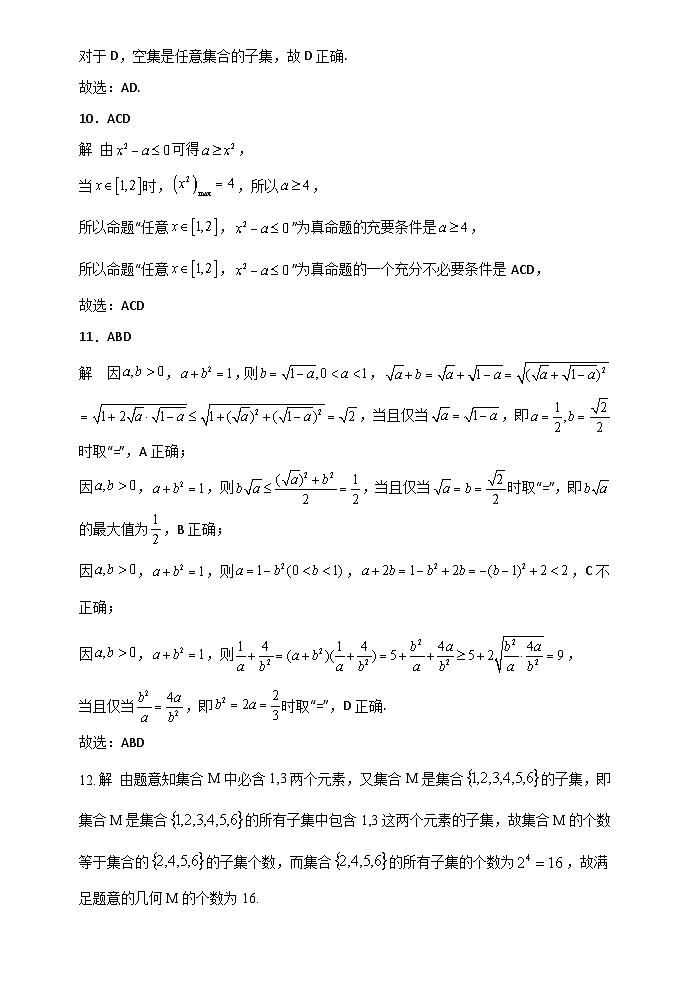 对于 D，空集是任意集合的子集，故 D 正确.
故选：AD.
10．ACD
解 由 x² − a ≤ 0 可得 a ≥ x²，
当 x ∈ [1,2] 时，(x²)max = 4，所以 a ≥ 4，
所以命题“任意 x ∈ [1,2]，x² − a ≤ 0”为真命题的充要条件是 a ≥ 4，
所以命题“任意 x ∈ [1,2]，x² − a ≤ 0”为真命题的一个充分不必要条件是 ACD，
故选：ACD
11．ABD
解 因 a,b > 0，a + b² = 1，则 b = √(1−a), 0 < a < 1，√a + b = √a + √(1−a) = √((√a + √(1−a))²)
= √(1 + 2√a · √(1−a)) ≤ √(1 + (√a)² + (√(1−a))²) = √2，当且仅当 √a = √(1−a)，即 a = 1/2, b = √2/2
时取“=”，A 正确；
因 a,b > 0，a + b² = 1，则 b√a ≤ ((√a)² + b²)/2 = 1/2，当且仅当 √a = b = √2/2 时取“=”，即 b√a
的最大值为 1/2，B 正确；
因 a,b > 0，a + b² = 1，则 a = 1 − b² (0 < b < 1)，a + 2b = 1 − b² + 2b = −(b−1)² + 2 < 2，C 不
正确；
因 a,b > 0，a + b² = 1，则 1/a + 4/b² = (a + b²)(1/a + 4/b²) = 5 + b²/a + 4a/b² ≥ 5 + 2√(b²/a · 4a/b²) = 9，
当且仅当 b²/a = 4a/b²，即 b² = 2a = 2/3 时取“=”，D 正确.
故选：ABD
12. 解 由题意知集合 M 中必含 1,3 两个元素，又集合 M 是集合 {1,2,3,4,5,6} 的子集，即
集合 M 是集合 {1,2,3,4,5,6} 的所有子集中包含 1,3 这两个元素的子集，故集合 M 的个数
等于集合的 {2,4,5,6} 的子集个数，而集合 {2,4,5,6} 的所有子集的个数为 2⁴ = 16，故满
足题意的几何 M 的个数为 16.